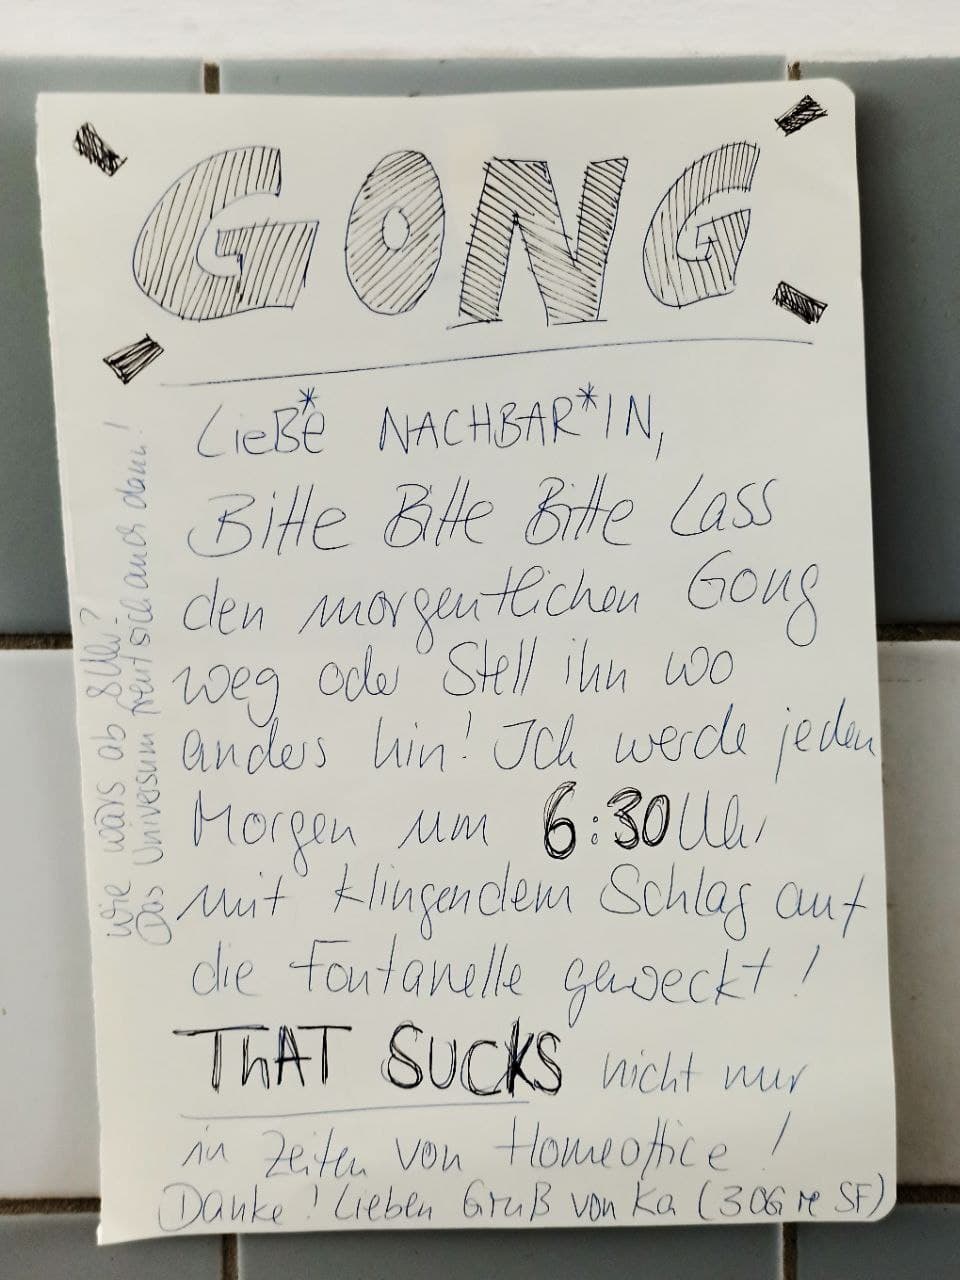 GONG
LieB*e NACHBAR*IN,
Bitte Bitte Bitte Lass
den morgentlichen Gong
weg oder Stell ihn wo
anders hin! Ich werde jeden
Morgen um 6:30 Uhr
mit klingendem Schlag auf
die Fontanelle geweckt!
THAT SUCKS nicht nur
in Zeiten von Homeoffice!
Danke! Lieben Gruß von Ka (3 OG re SF)
Wie wärs ab 8 Uhr?
Das Universum freut sich auch dann!